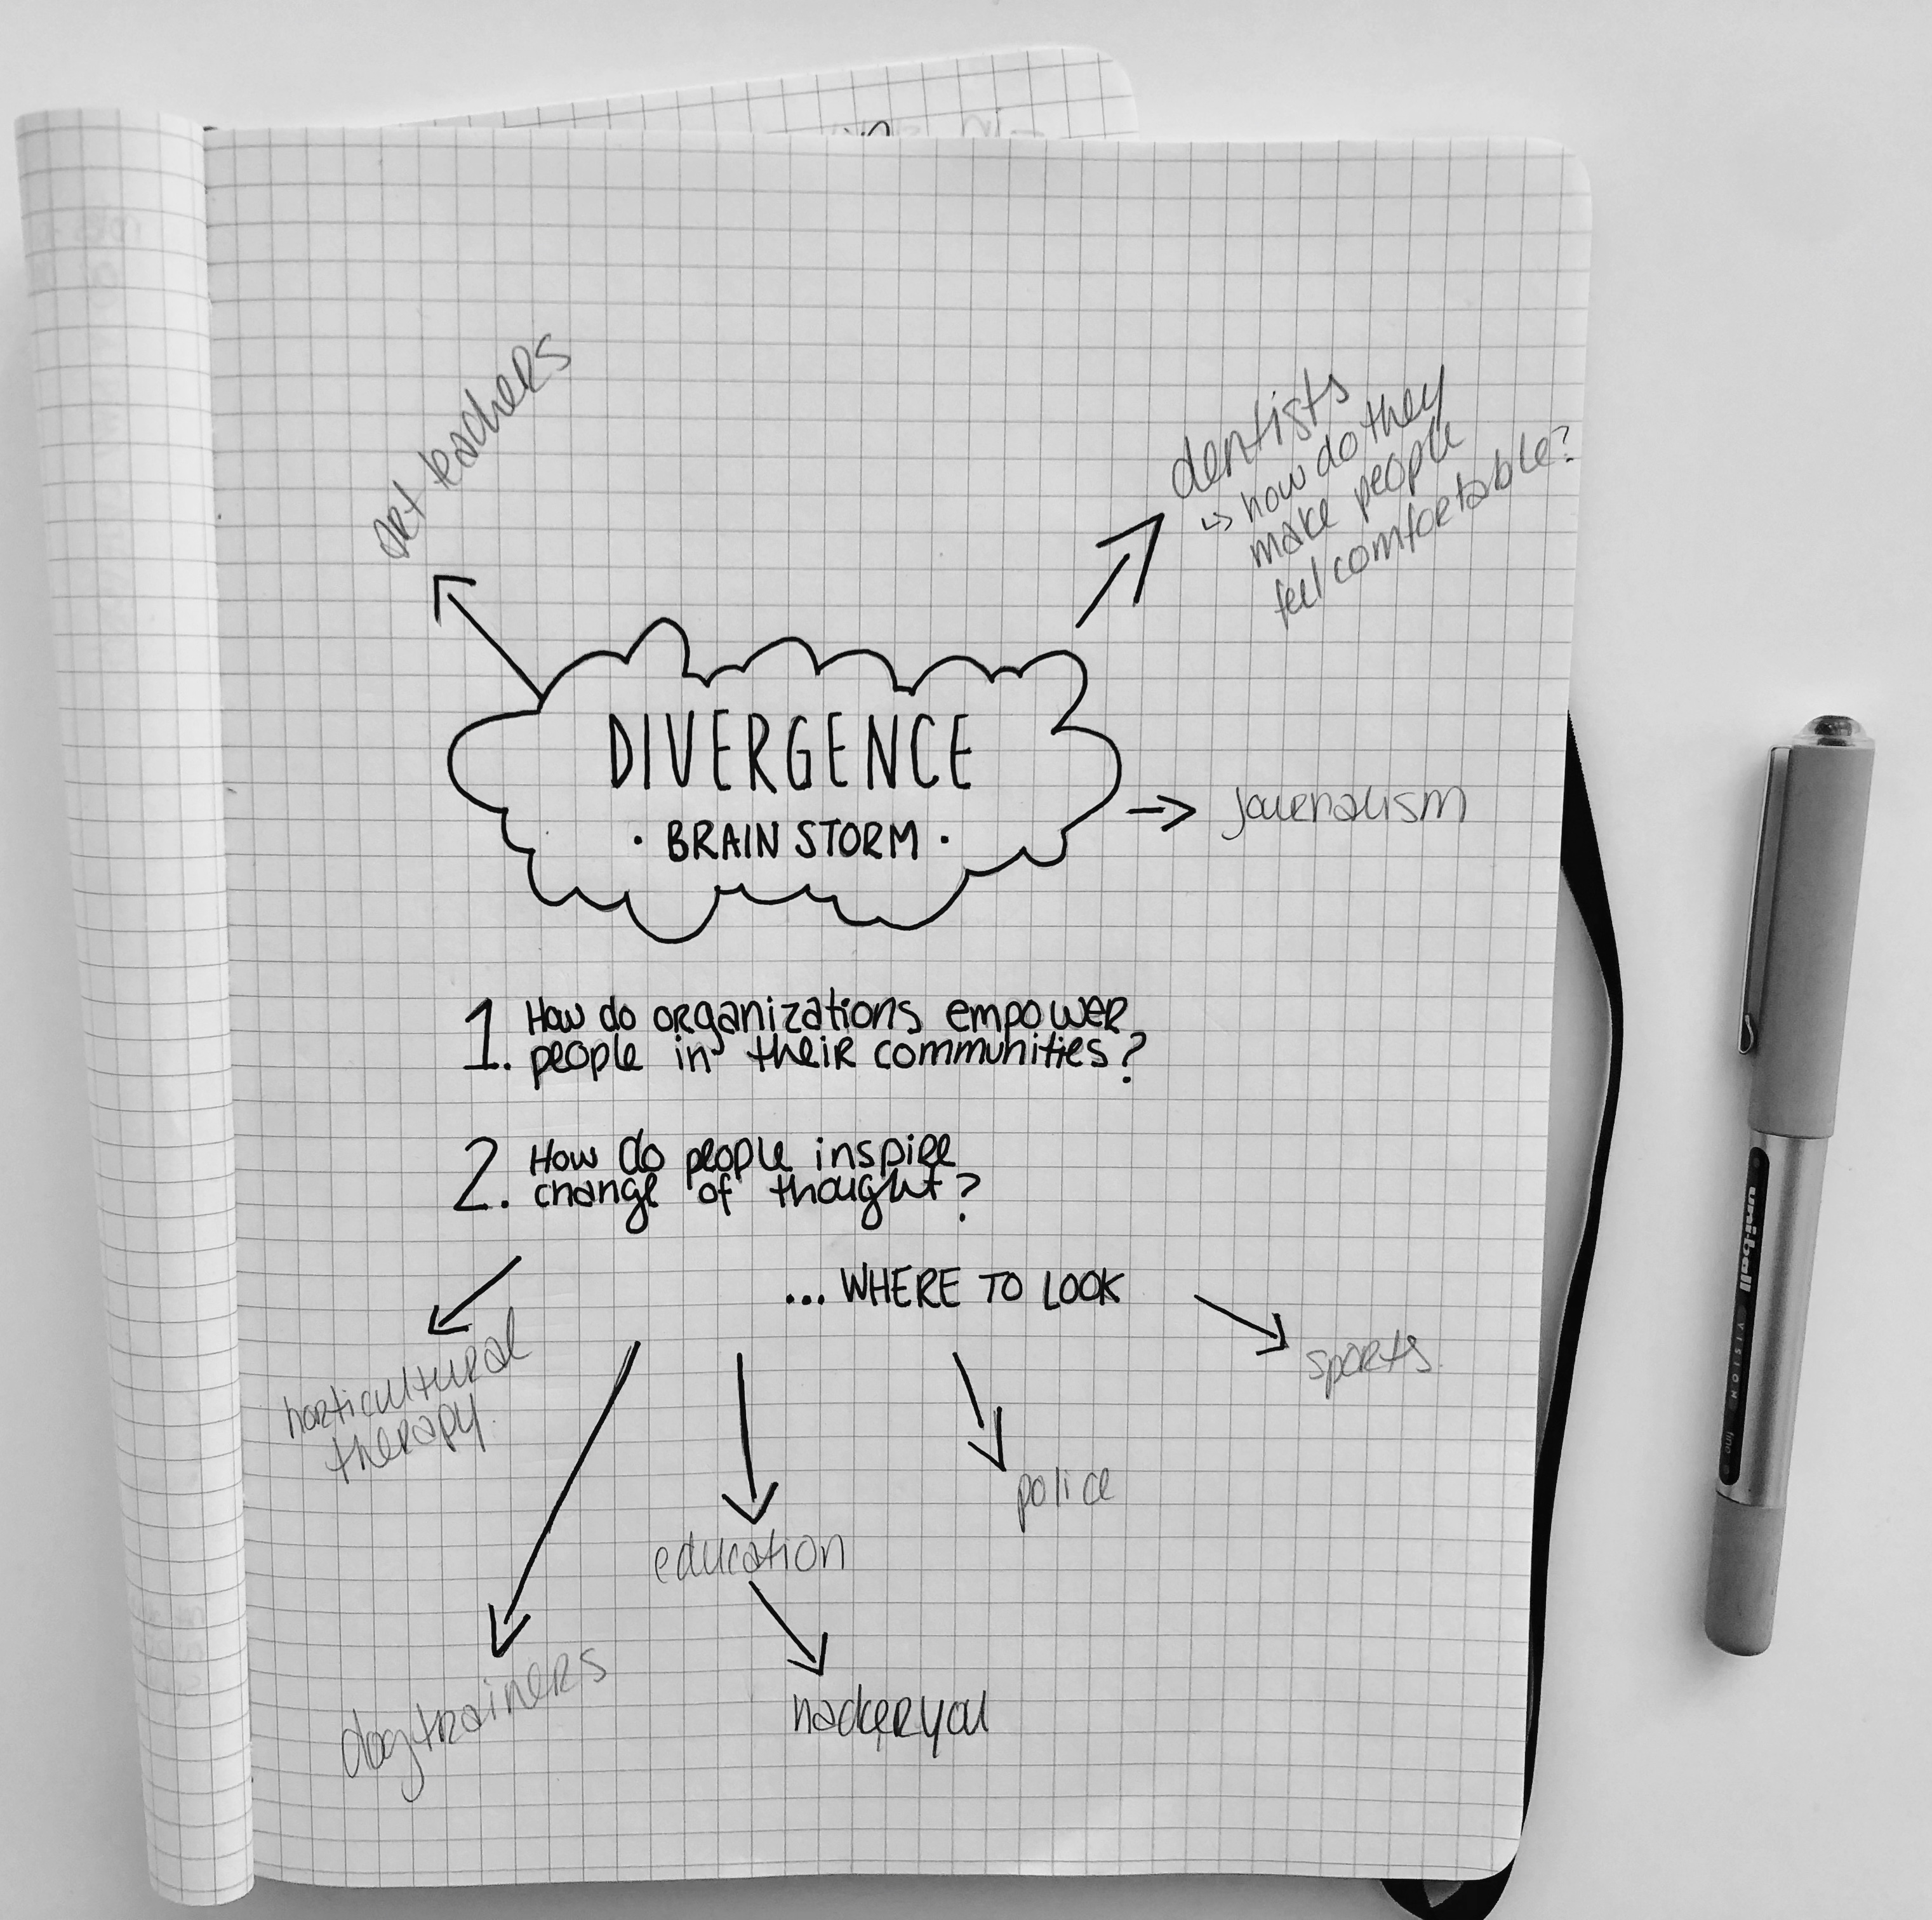 art teachers
dentists
↳ how do they
make people
feel comfortable?
DIVERGENCE
· BRAIN STORM ·
journalism
1. How do organizations empower
people in their communities?
2. How do people inspire
change of thought?
... WHERE TO LOOK
horticultural
therapy
sports
police
education
dog trainers
hackeryou
uni-ball VISION fine